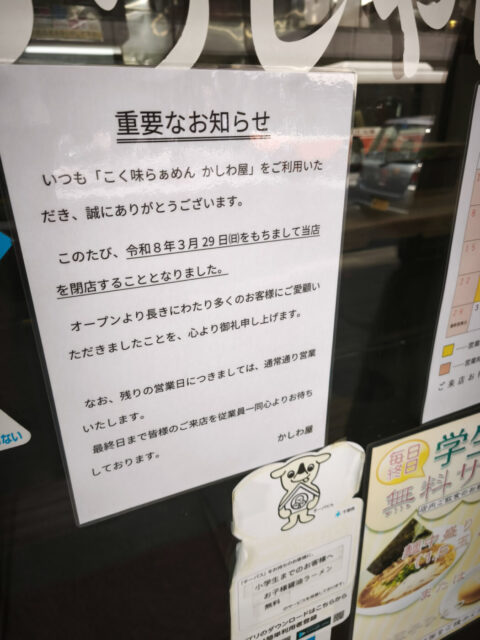 重要なお知らせ
いつも「こく味らぁめん かしわ屋」をご利用いた
だき、誠にありがとうございます。
このたび、令和８年３月29日㈰をもちまして当店
を閉店することとなりました。
オープンより長きにわたり多くのお客様にご愛顧い
ただきましたことを、心より御礼申し上げます。
なお、残りの営業日につきましては、通常通り営業
いたします。
最終日まで皆様のご来店を従業員一同心よりお待ち
しております。
かしわ屋
小学生までのお子様へ
お子様醤油ラーメン
無料
のサービスを実施しております
アプリのダウンロードはこちらから
毎日
終日
学生
無料サ
麺大盛り
または
ご来店お
ない